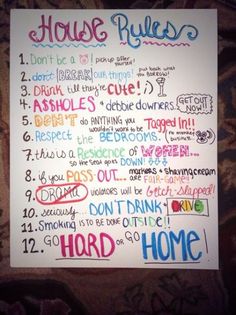 House Rules
1. Don't be a ! pick up after yourself!
2. don't BREAK our things! put back what you BORROW!
3. DRINK till they're CUTE! ;)
4. A$$HOLES & debbie downers GET OUT NOW!!
5. DON'T do ANYTHING you wouldn't want to be Tagged In!!
6. Respect the BEDROOMS. no monkey business
7. this is a Residence of WOMEN...
so the seat goes DOWN!
8. if you PASS OUT... markers + shaving cream are FAIR-GAME!!
9. DRAMA violators will be Bitch-Slapped!
10. seriously... DON'T DRINK DRIVE
11. SMOKING is to be done OUTSIDE!!
12. GO HARD or GO HOME!